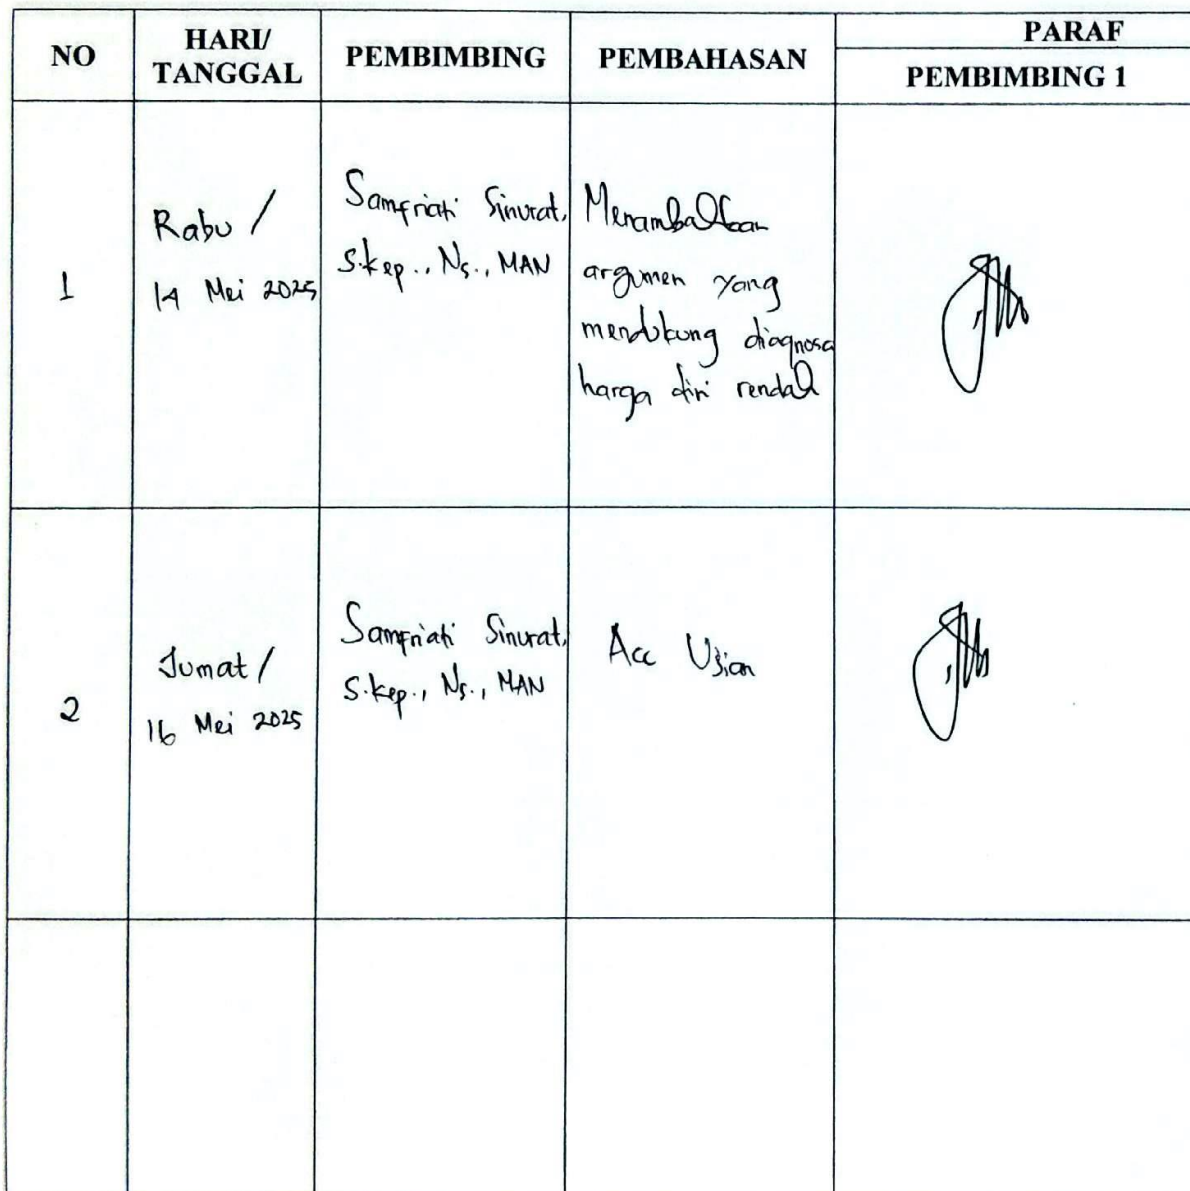 NO
HARI/
TANGGAL
PEMBIMBING
PEMBAHASAN
PARAF
PEMBIMBING 1
1
Rabu /
14 Mei 2025
Samfriati Sinurat,
S.kep., Ns., MAN
Menambahkan
argumen yang
mendukung diagnosa
harga diri rendah
2
Jumat /
16 Mei 2025
Samfriati Sinurat,
S.kep., Ns., MAN
Acc Ujian